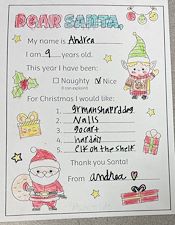 DEAR SANTA,
My name is Andrea
I am 9 years old.
This year I have been:
Naughty Nice
(I can explain)
For Christmas I would like:
1. grmanshaprddog
2. Nails
3. gocart
4. harday
5. Elf on the shelf
Thank you Santa!
From andrea